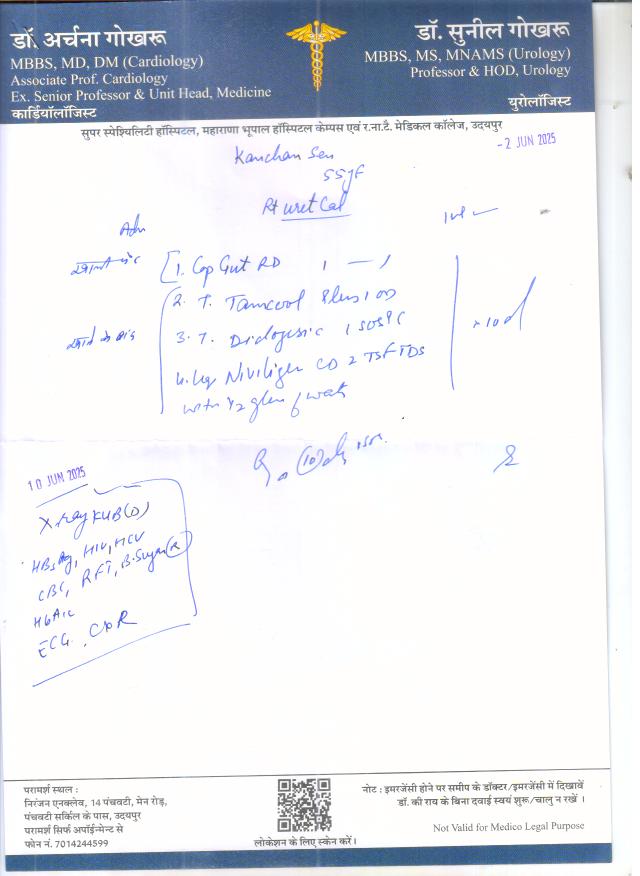 डॉ अर्चना गोखरू
MBBS, MD, DM (Cardiology)
Associate Prof. Cardiology
Ex. Senior Professor & Unit Head, Medicine
कार्डियॉलॉजिस्ट
डॉ. सुनील गोखरू
MBBS, MS, MNAMS (Urology)
Professor & HOD, Urology
युरोलॉजिस्ट
सुपर स्पेश्यिलिटी हॉस्पिटल, महाराणा भूपाल हॉस्पिटल केम्पस एवं र.ना.टै. मेडिकल कॉलेज, उदयपुर
- 2 JUN 2025
Kanchan Sen
55yF
Rt uret Cal
Adv
1. Cap Gut RD 1 — 1
2. T. Tamcool Plus 1 OD
3. T. Diclogesic 1 SOS
4. 2 TSF TDS
with 1/2 glass of water
x 10 d
10 JUN 2025
X-ray KUB (D)
HBsAg, HIV, HCV
CBC, RFT, B. Sugar (R)
HbA1c
ECG. CXR
परामर्श स्थल :
निरंजन एनक्लेव, 14 पंचवटी, मेन रोड़,
पंचवटी सर्किल के पास, उदयपुर
परामर्श सिर्फ अपॉईन्मेन्ट से
फोन नं. 7014244599
लोकेशन के लिए स्केन करें।
नोट : इमरजेंसी होने पर समीप के डॉक्टर/इमरजेंसी में दिखावें
डॉ. की राय के बिना दवाई स्वयं शुरू/चालु न रखें ।
Not Valid for Medico Legal Purpose